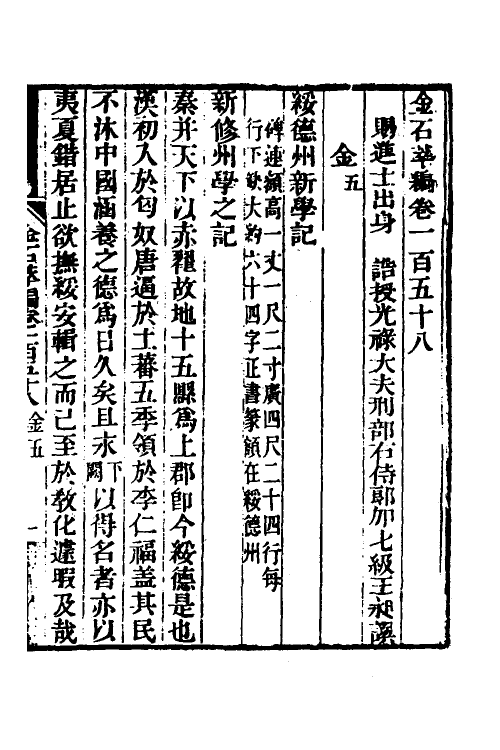 金石萃編卷一百五十八
賜進士出身　誥授光祿大夫刑部右侍郎加七級王昶譔
金五
綏德州新學記
碑連額高一丈一尺二寸廣四尺二十四行每
行下缺大約六十四字正書篆額在綏德州
新修州學之記
秦并天下以赤翟故地十五縣爲上郡卽今綏德是也
漢初入於匈奴唐逼於土蕃五季領於李仁福蓋其民
不沐中國涵養之德爲日久矣且永下闕以得名者亦以
夷夏錯居止欲撫綏安輯之而已至於敎化遑暇及哉
金石萃編卷一百五十八　金五　一